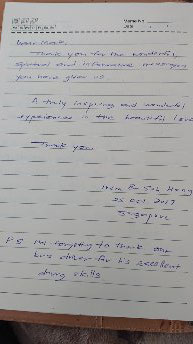 Thank you for the wonderful
spiritual and informative
you have given us
A truly inspiring and wonderful
experience in this beautiful
Thank you
25 Oct 2019
Singapore
P.S. I'm forgetting to thank our
bus driver for his excellent
driving skills